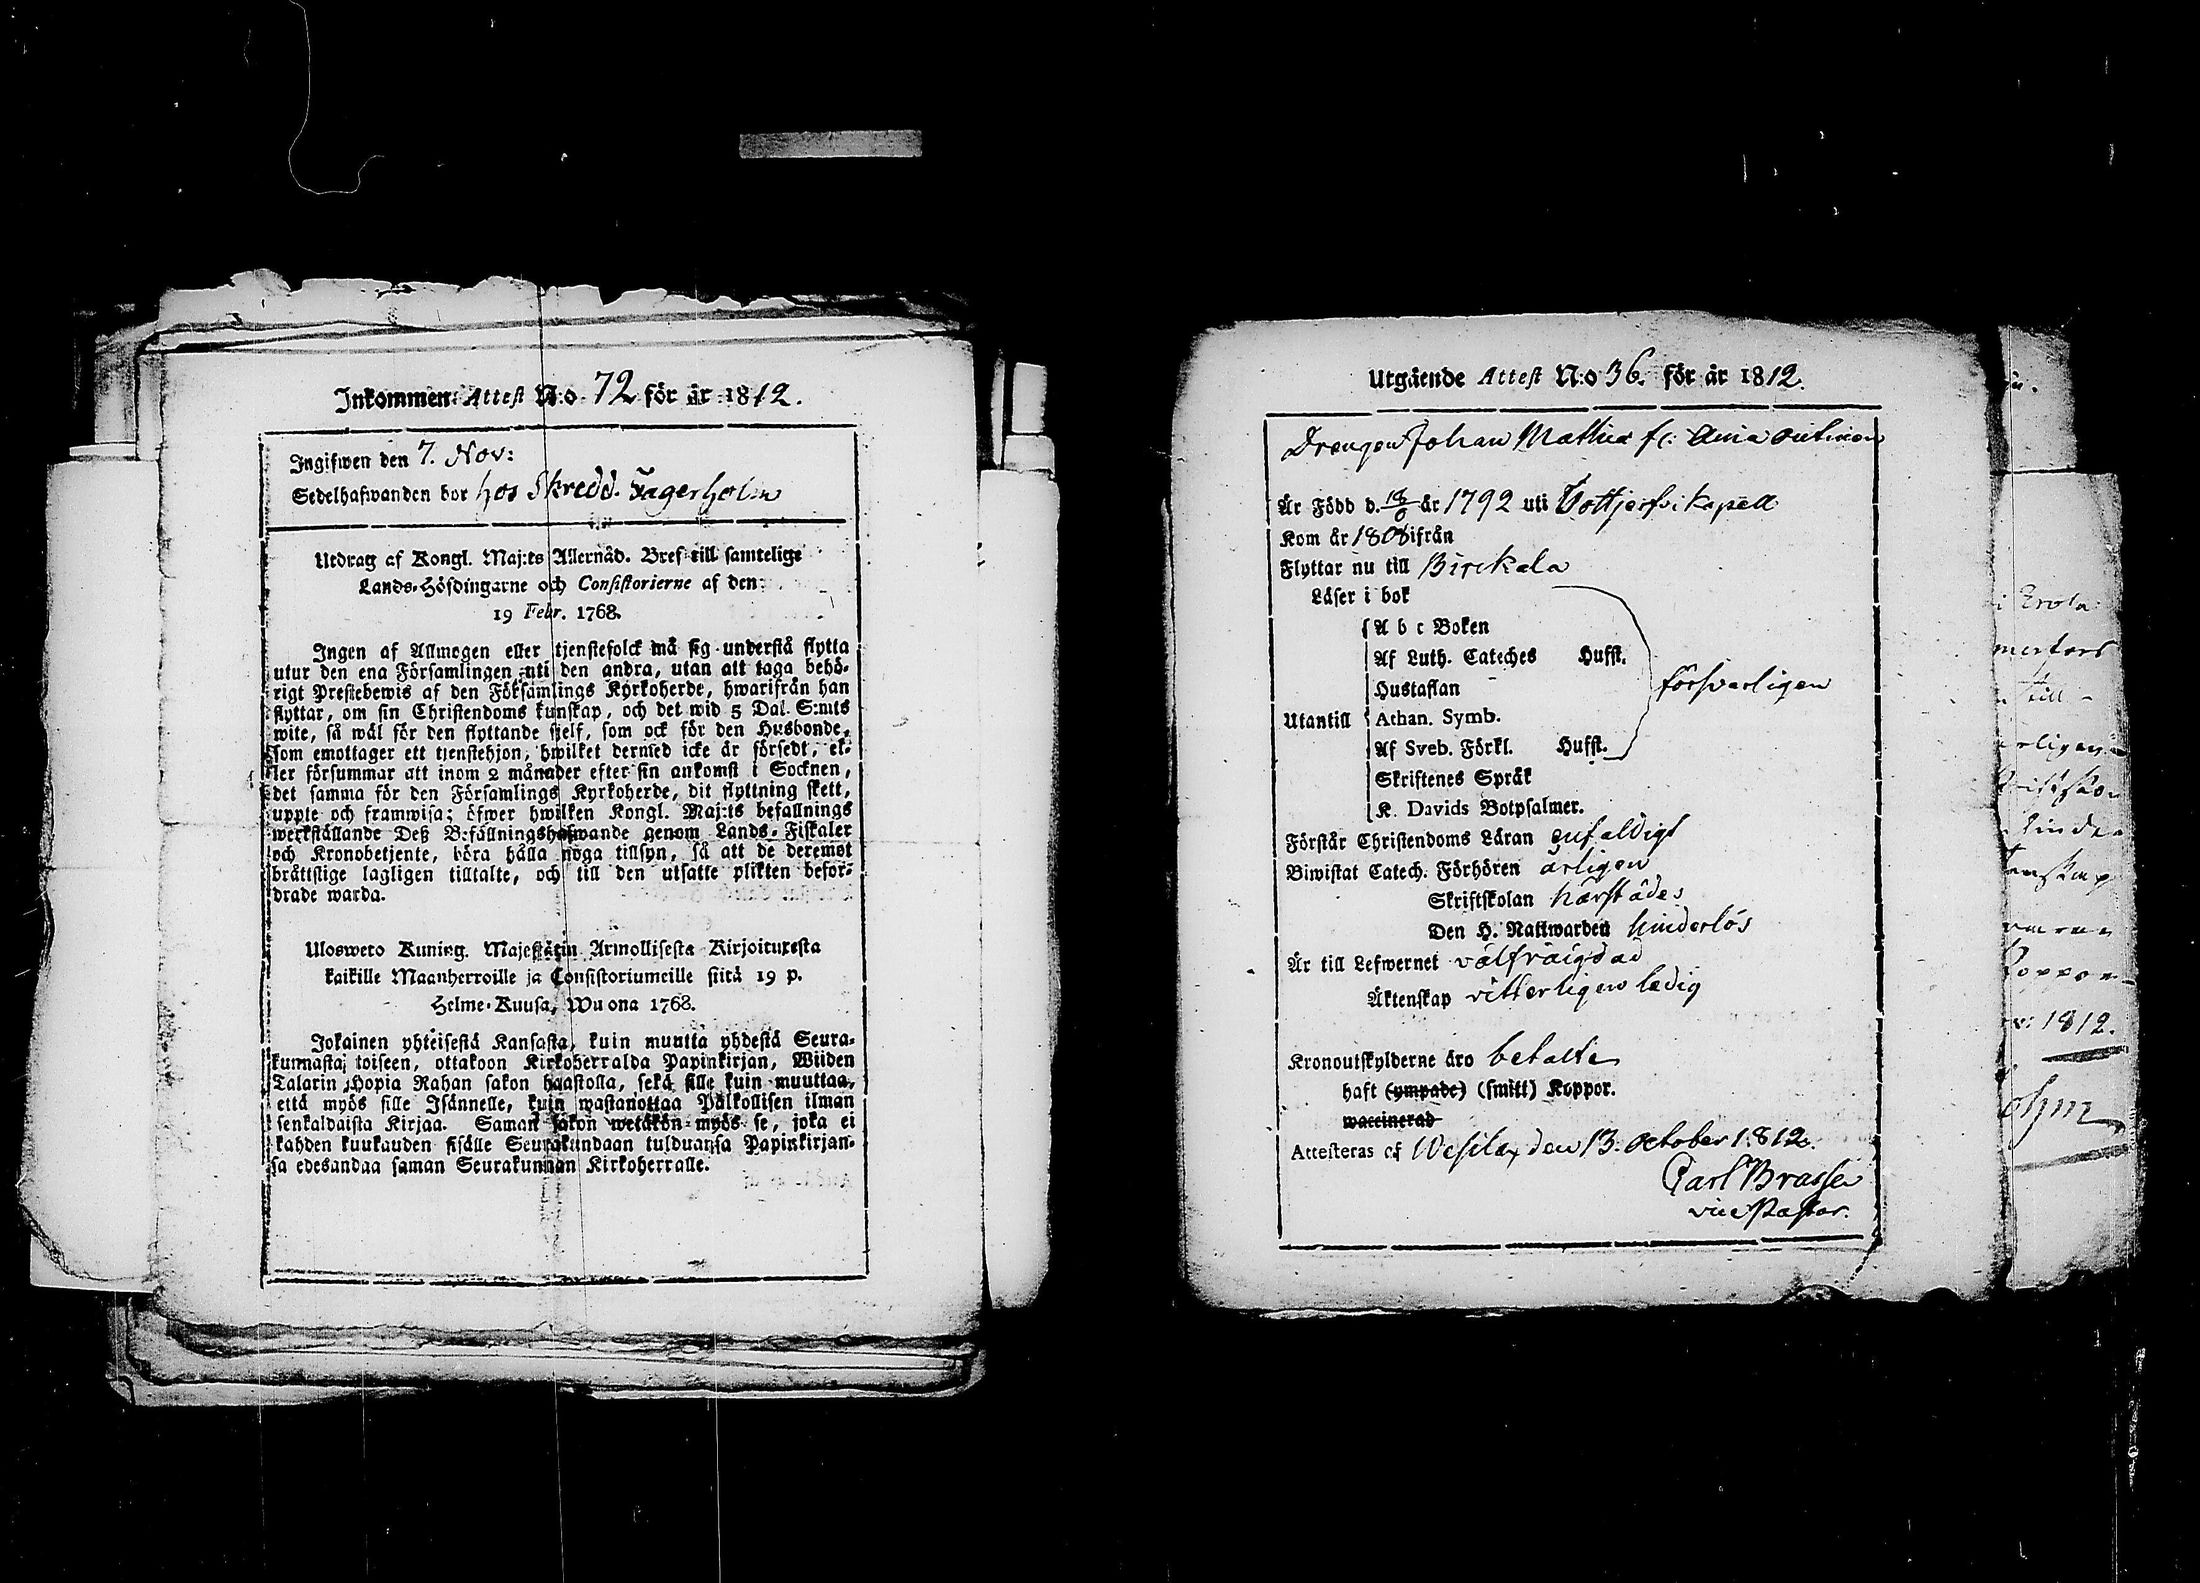 Inkommen Attest N:o 72 för år 1812.
Ingifwen den 7. Nov:
Sedelhafwanden bor hos Skredd. Fagerholm
Utdrag af Kongl. Maj:ts Allernåd. Bref till samtelige
Lands-Höfdingarne och Consistorierne af den
19 Febr. 1768.
Ingen af Allmogen eller tjenstefolck må sig understå flytta
utur den ena Församlingen uti den andra, utan att taga behö-
rigt Prestebewis af den Församlings Kyrkoherde, hwarifrån han
flyttar, om sin Christendoms kunskap, och det wid 5 Dal. S:mts
wite, så wäl för den flyttande sjelf, som ock för den Husbonde,
som emottager ett tjenstehjon, hwilket dermed icke är försedt, el-
ler försummar att inom 2 månader efter sin ankomst i Socknen,
det samma för den Församlings Kyrkoherde, dit flyttning skett,
uppte och framwisa; öfwer hwilken Kongl. Maj:ts befallnings
werkställande Deß Befallningshafwande genom Lands-Fiskaler
och Kronobetjente, böra hålla noga tillsyn, så att de deremot
bråttslige lagligen tilltalte, och till den utsatte plikten befor-
drade warda.
Ulosweto Kuning. Majestätin Armollisesta Kirjoituxesta
kaikille Maanherroille ja Consistoriumeille siitä 19 p.
Helme-Kuusa, Wuona 1768.
Jokainen yhteisestä Kansasta, kuin muutta yhdestä Seura-
kunnasta toiseen, ottakoon Kirkoherralda Papinkirjan, Wiiden
Talarin Hopia Rahan sakon haastolla, sekä sille kuin muuttaa,
että myös sille Isännelle, kuin wastanottaa Palkollisen ilman
senkaldaista Kirjaa. Saman sakon wetäkön myös se, joka ei
kahden kuukauden sisälle Seurakundaan tulduansa Papinkirjan-
sa edesandaa saman Seurakunnan Kirkoherralle.
Utgående Attest N:o 36. för år 1812.
Drengen Johan Mathias
Är Född d. 18 år 1792 uti Tottjerfvi kapell
Kom år 1808 ifrån
Flyttar nu till Birckala
Läser i bok
A b c Boken
Af Luth. Cateches Husst.
Hustaflan
försvarligen
Utantill Athan. Symb.
Af Sveb. Förkl. Husst.
Skriftenes Språk
K. Davids Botpsalmer.
Förstår Christendoms Läran enfaldigt
Biwistat Catech. Förhören årligen
Skriftskolan härstädes
Den H. Nattwarden hinderlös
Är till Lefwernet välfräigdad
Äktenskap vitterligen ledig
Kronoutskylderne äro betalte
haft (ympade) (smitt) Koppor.
waccinerad
Attesteras af Wesilax den 13. October 1812.
Carl Brasse
vice Pastor.
1812.